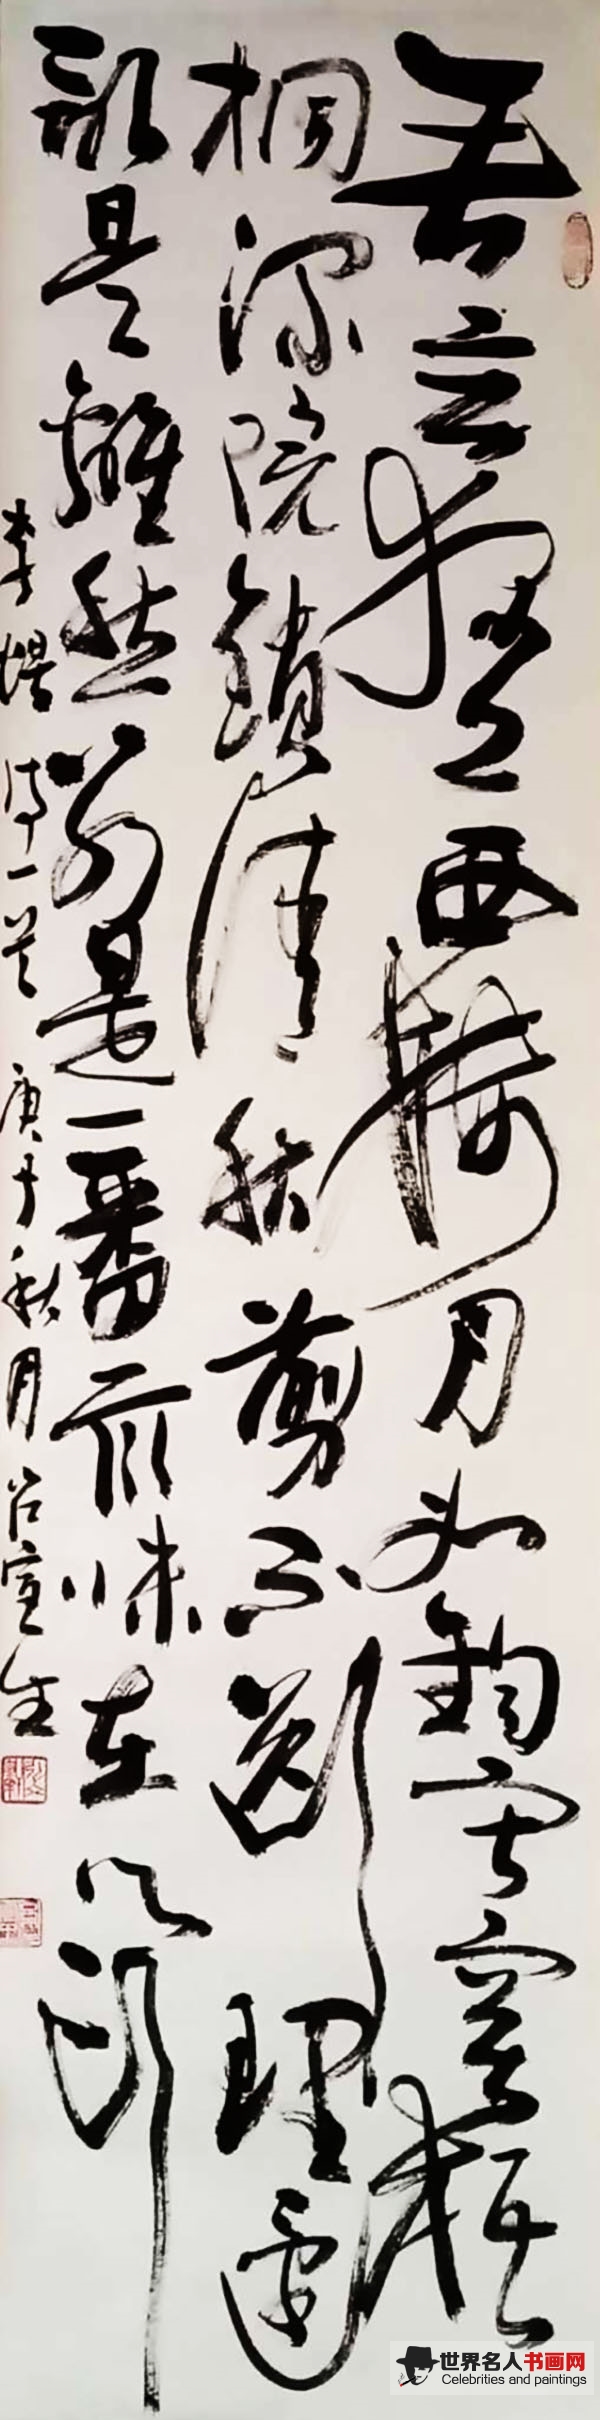 無言獨上西樓月如鉤寂寞梧
桐深院鎖清秋剪不斷理還
亂是離愁別是一番滋味在心頭
李煜詩一首 庚子秋月
世界名人书画网
Celebrities and paintings